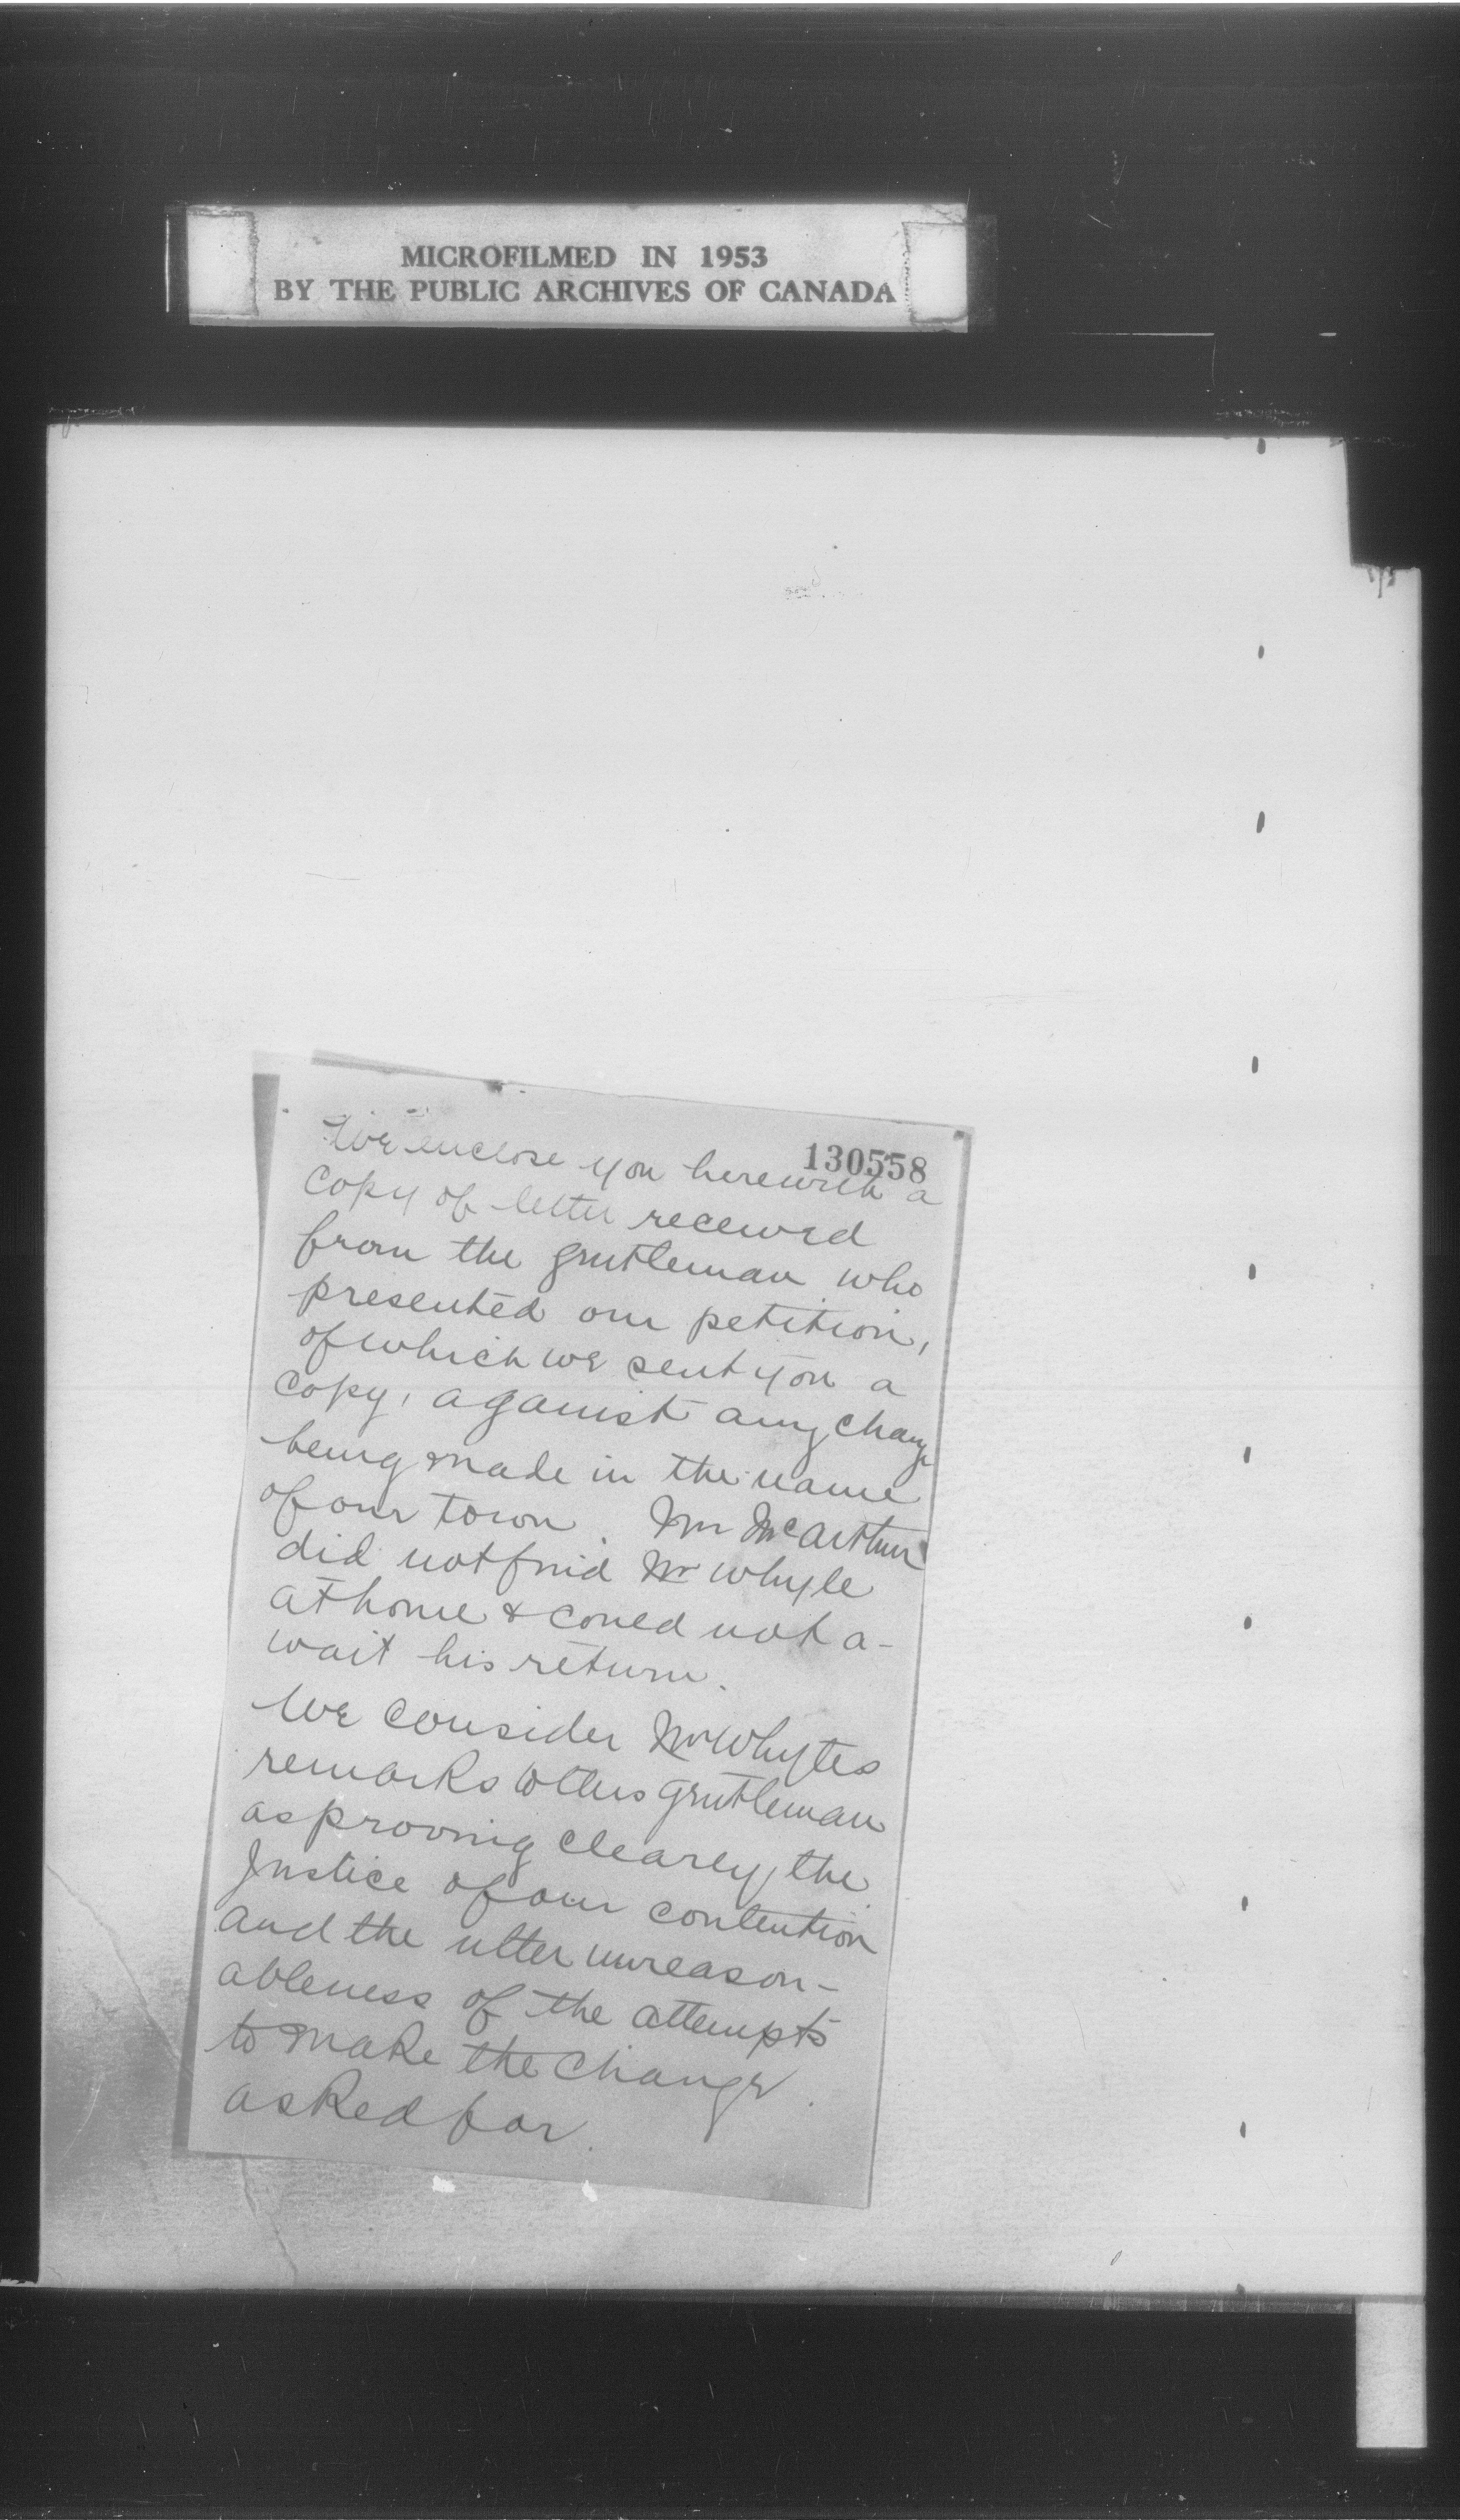 MICROFILMED IN 1953
BY THE PUBLIC ARCHIVES OF CANADA
130558
We enclose you herewith a
copy of letter received
from the gentleman who
presented our petition,
of which we sent you a
copy, against any change
being made in the name
of our town. Mr McArthur
did not find Mr Whyte
at home & could not a-
wait his return.
We consider Mr Whytes
remarks to this gentleman
as proving clearly, the
Justice of our contention
and the utter unreason-
ableness of the attempts
to make the change
asked for.